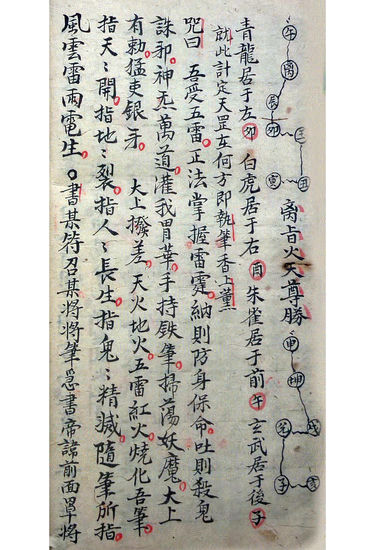 午
辰
卯
寅
丑
旨火天尊勝
申
坤
戌
子
亥
青龍居于左卯 白虎居于右酉 朱雀居于前午 玄武居于後子
就此計定天罡在何方即執筆香上薰
咒曰 吾受五雷正法掌握雷霆納則防身保命吐則殺鬼
誅邪神无萬道灌我胃華手持鉄筆掃蕩妖魔大上
有勅猛吏銀牙 大上撥差天火地火五雷紅火燒化吾筆
指天〻開指地〻裂指人〻長生指鬼〻精滅隨筆所指
風雲雷雨電生〇書某符召某將將筆急書帝諱前面罩將